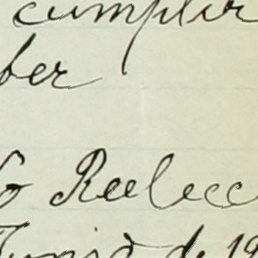 cumplir
ber
Reelecc
Junio de 19